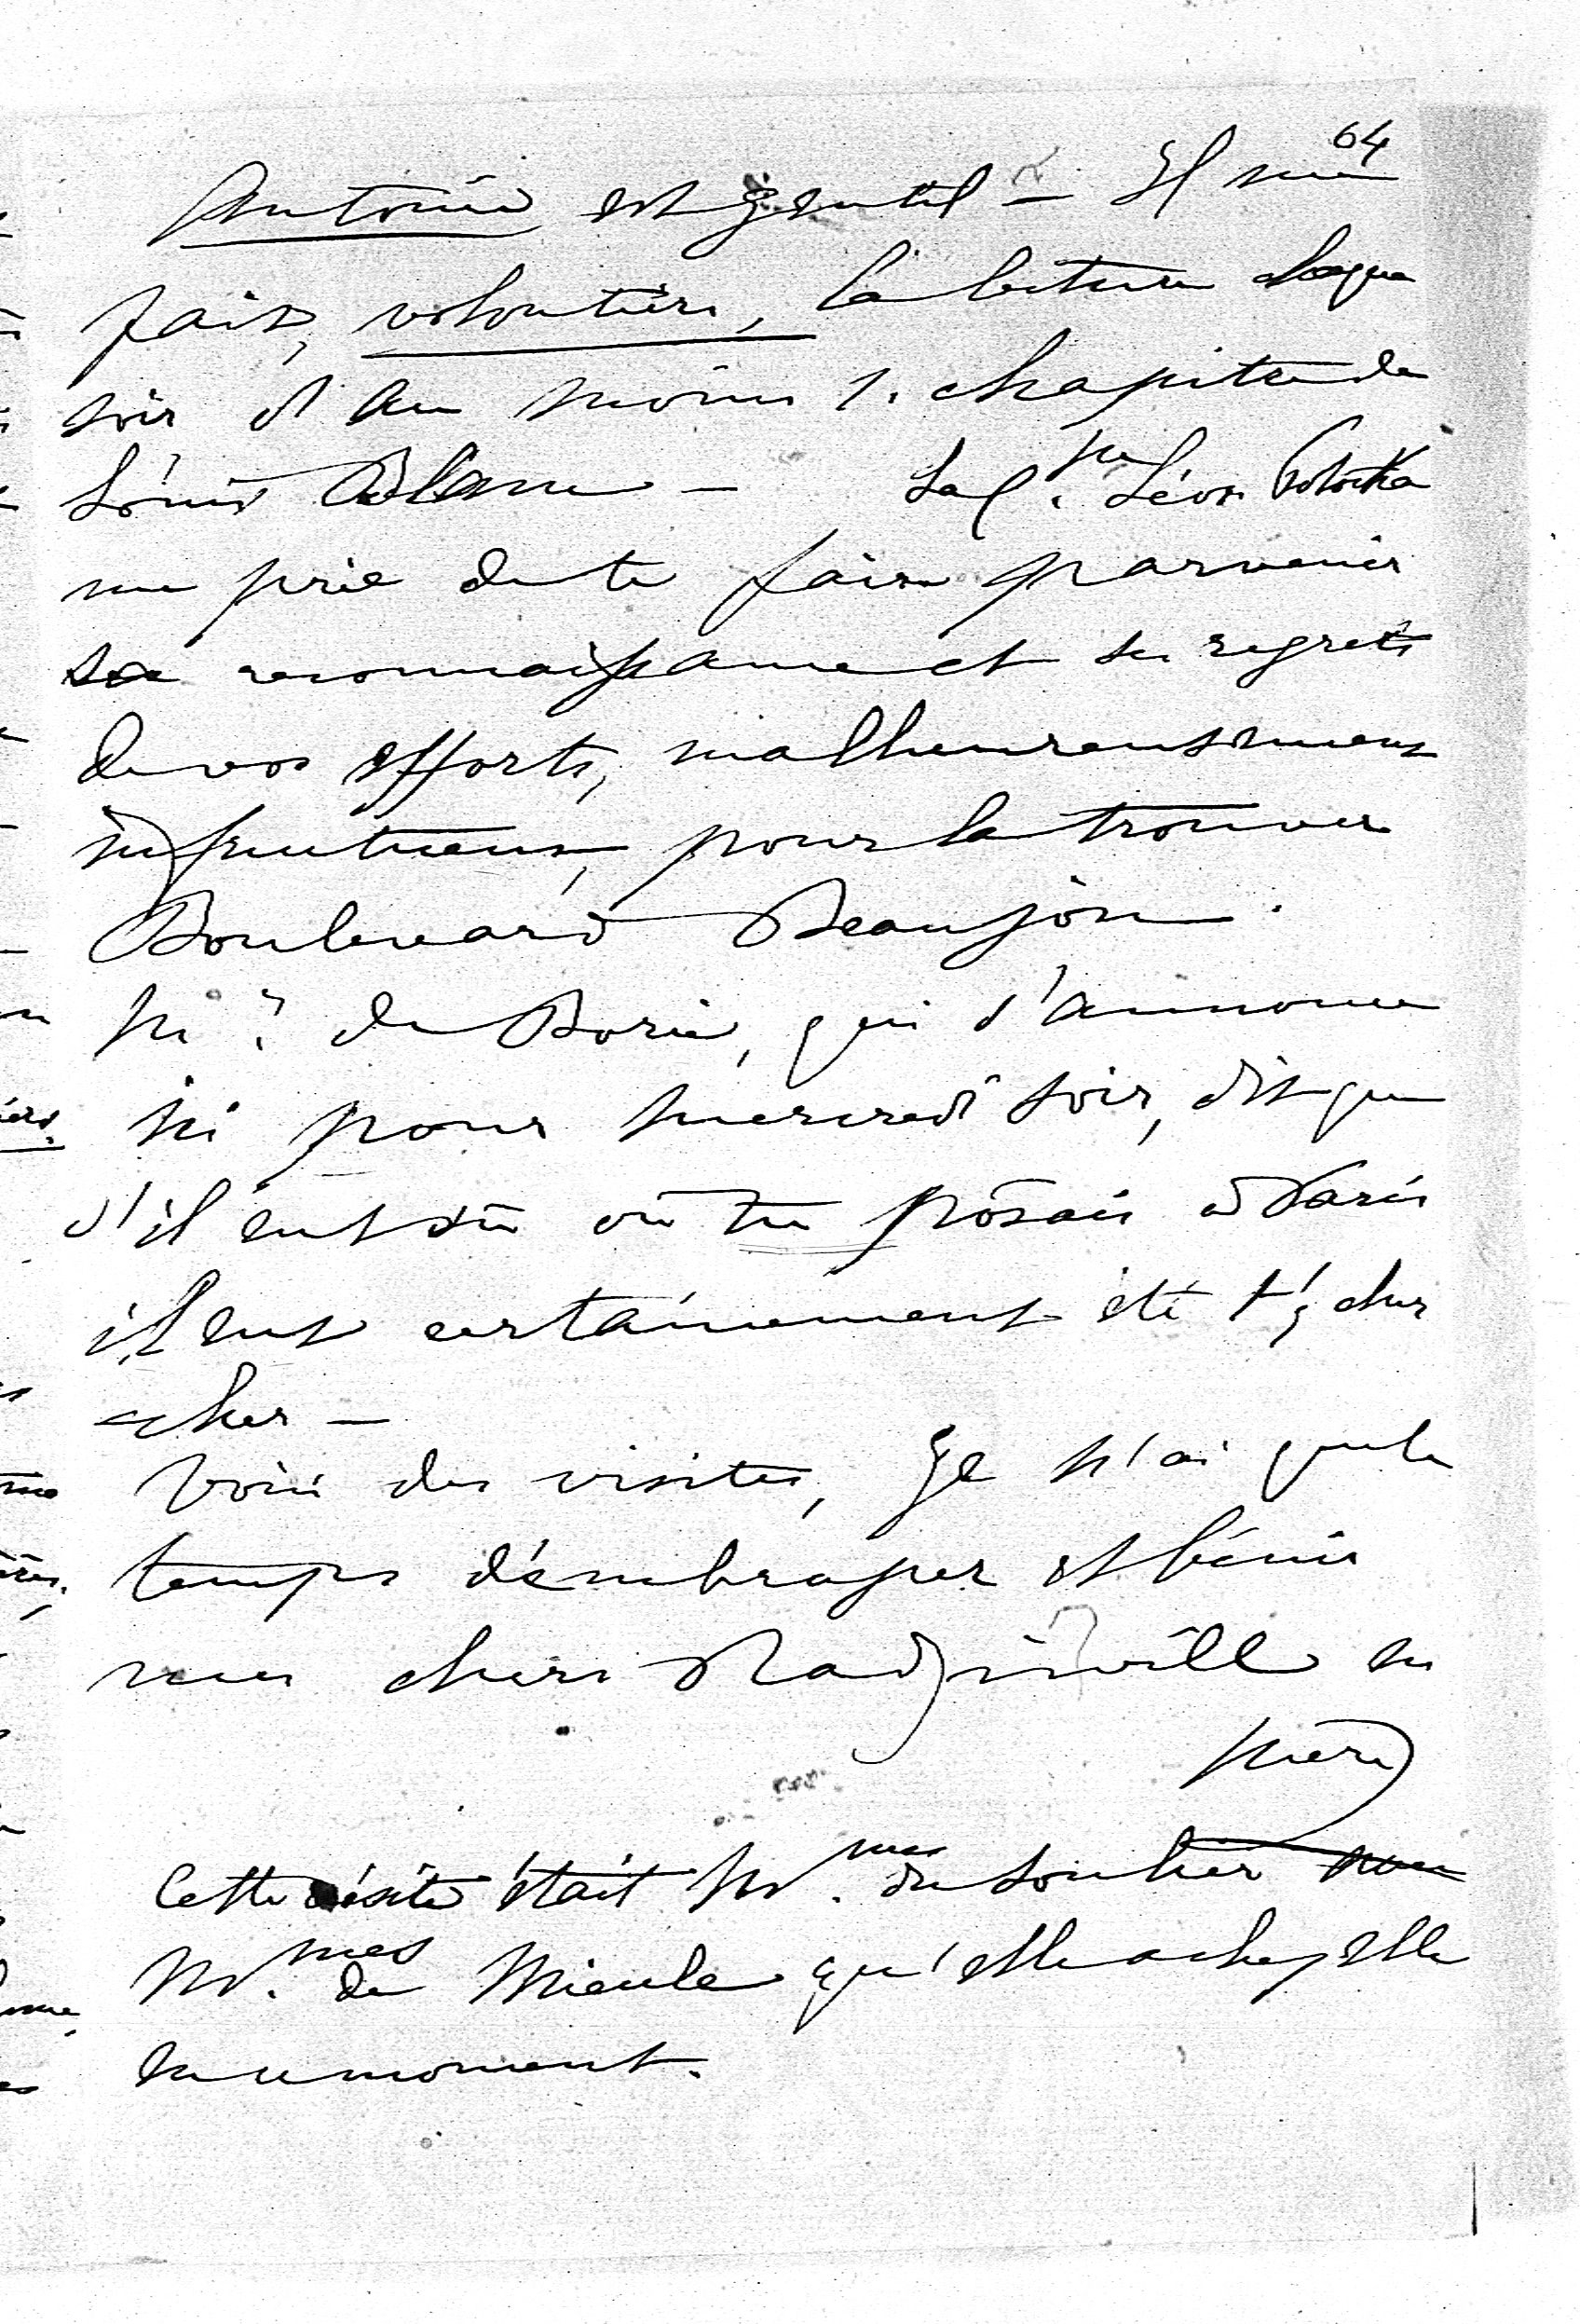 64
Antoine est gentil – Il me
fait, volontiers, la lecture chaque
soir d'au moins 1. chapitre de
Louis Blanc – La Csse. Léon Potocka
me prie de te faire parvenir
sa reconnaissance et ses regrets
de vos efforts, malheureusement
infructueux, pour la trouver
Boulevard Beaujon.
Mr. de Borie, qui s'annonce
ici pour mercredi soir, dit que
s'il eut su où tu posais à Paris
il eut certainement été t'y cher
cher –
Voici des visites, je n'ai que le
temps d'embrasser et bénir
mes chers Radziwill en
mère
Cette visite était Mmes. de
Mmes. de Mieule qu'elle a chez elle
en ce moment.